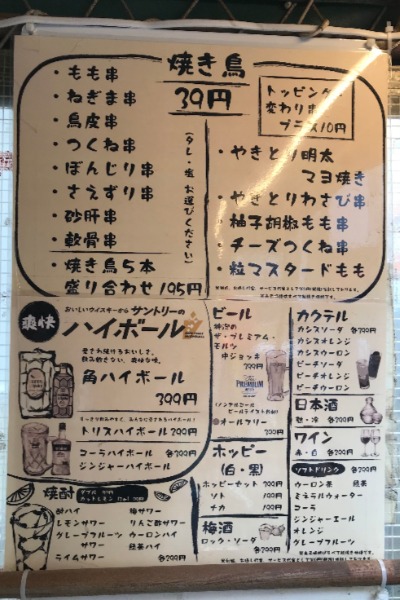 焼き鳥
39円
トッピング
変わり串
プラス10円
・もも串
・ねぎま串
・鳥皮串
・つくね串
・ぼんじり串
・さえずり串
・砂肝串
・軟骨串
・焼き鳥5本
盛り合わせ 195円
(タレ・塩 お選びください)
・やきとり明太
マヨ焼き
・やきとりわさび串
・柚子胡椒もも串
・チーズつくね串
・粒マスタードもも
爽快
おいしいウイスキーから サントリーの
ハイボール
角ハイボール
399円
トリスハイボール 299円
コーラハイボール 各399円
ジンジャーハイボール
ビール
ザ・プレミアム・
モルツ
中ジョッキ
399円
オールフリー
ホッピー
(白・黒)
ホッピーセット 399円
ソト
ナカ
梅酒
ロック・ソーダ
各399円
カクテル
カシスソーダ 各399円
カシスオレンジ
カシスウーロン
ピーチソーダ
ピーチオレンジ
ピーチウーロン
日本酒
熱・冷 各299円
ワイン
赤・白 各399円
ソフトドリンク
ウーロン茶 緑茶
ミネラルウォーター
コーラ
ジンジャーエール
オレンジ
グレープフルーツ
焼酎
酎ハイ 梅サワー
レモンサワー りんご酢サワー
グレープフルーツ ウーロンハイ
サワー 緑茶ハイ
ライムサワー 各299円